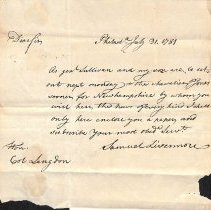 Philad.ᵃ July 31. 1781
Dear Sir
As genl Sullivan and my are, to set
out next monday & the chevalier Jones
for Newhampshire by whom you
will hear the news of every kind I shall
only here enclose you a paper, and
subscribe your most obd. Servt.
Samuel Livermore
Honl
Col Langdon